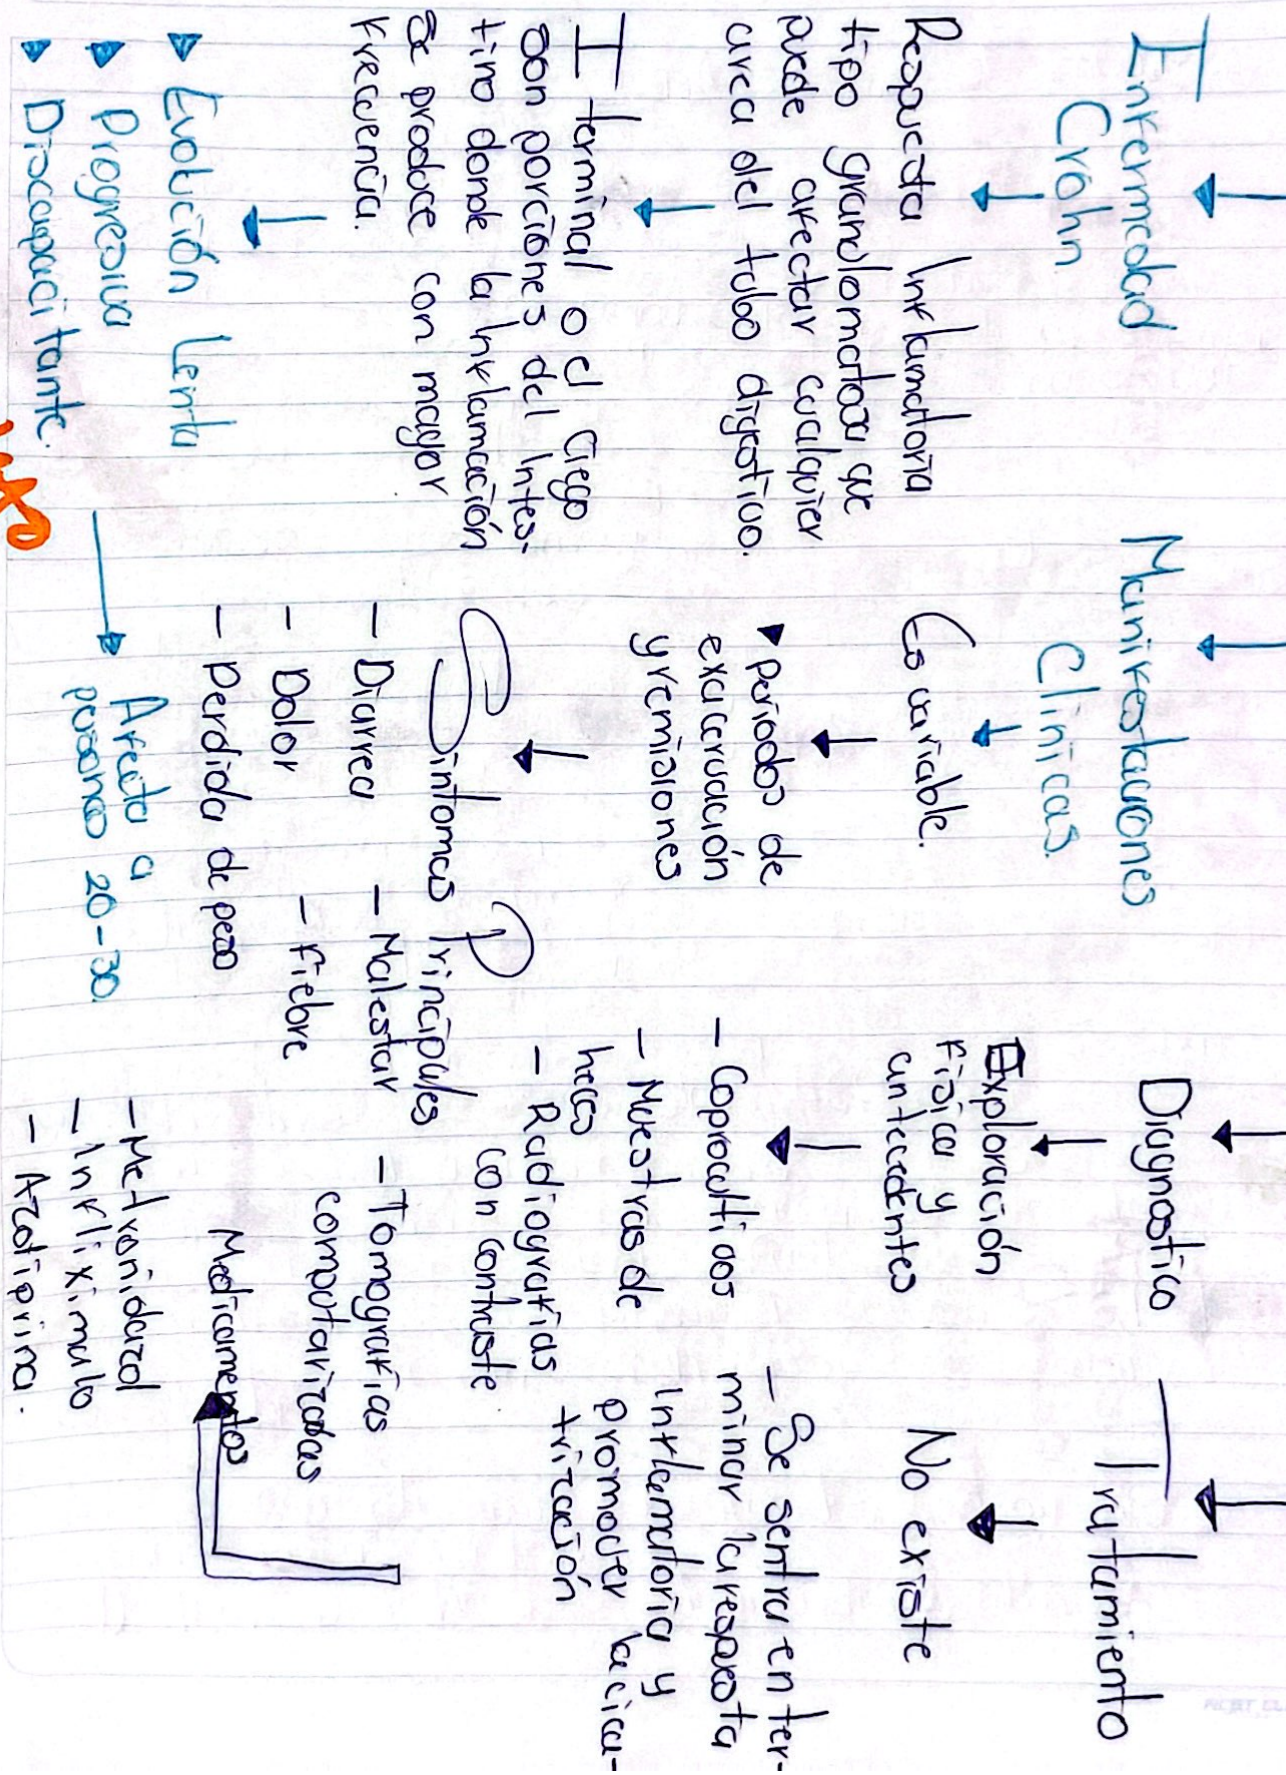 Enfermedad
Crohn
Respuesta Inflamatoria
tipo granulomatosa que
puede afectar cualquier
area del tubo digestivo.
I terminal o el Ciego
son porciones del Intes-
tino donde la Inflamación
se produce con mayor
frecuencia.
Evolución Lenta
Progresiva
Discapacitante.
Afecta a
personas 20-30.
Manifestaciones
Clínicas.
Es variable.
Periodos de
exacervación
y remisiones
Sintomas Principales
- Diarrea
- Malestar
- Dolor
- Fiebre
- Perdida de peso
Diagnostico
Exploración
Física y
antecedentes
- Coprocultivos
- Muestras de
heces
- Radiografías
con contraste
- Tomografías
computarizadas
Tratamiento
No existe
- Se sentra en ter-
minar la respuesta
Inflamatoria y
promover la cica-
trización
Medicamentos
- Metronidazol
- Infliximabo
- Azatiprina.